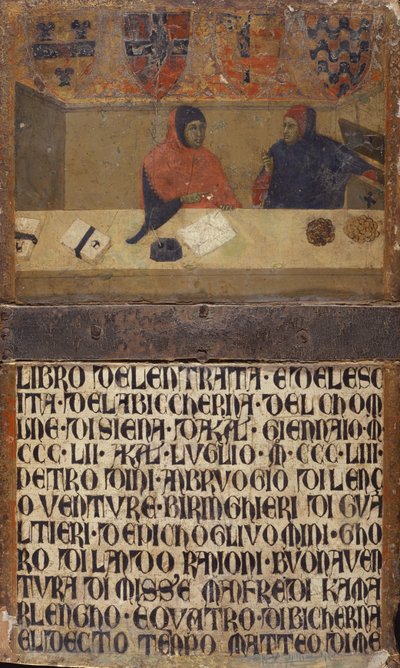 LIBRO DELENTRATA · E DELESC
ITA · DELA BICCHERNA · DEL CHOM
UNE · DI SIENA · DA KAL · GIENNAIO · M
CCC · LII · A KAL · LUGLIO · M · CCC · LIII
PIETRO DINI · ANBRUOGIO DI LENÇ
O VENTURE · BIRINGHIERI DI GUA
LTIERI · DE PICHOGLIVOMINI · GHO
RO DI LANDO RANIONI · BUONAVEN
TURA DI MISS'E MANFREDI KAMA
RLENGHO · E QUATRO · DI BICHERNA
EL DECTO TENPO MATTEO DI ME